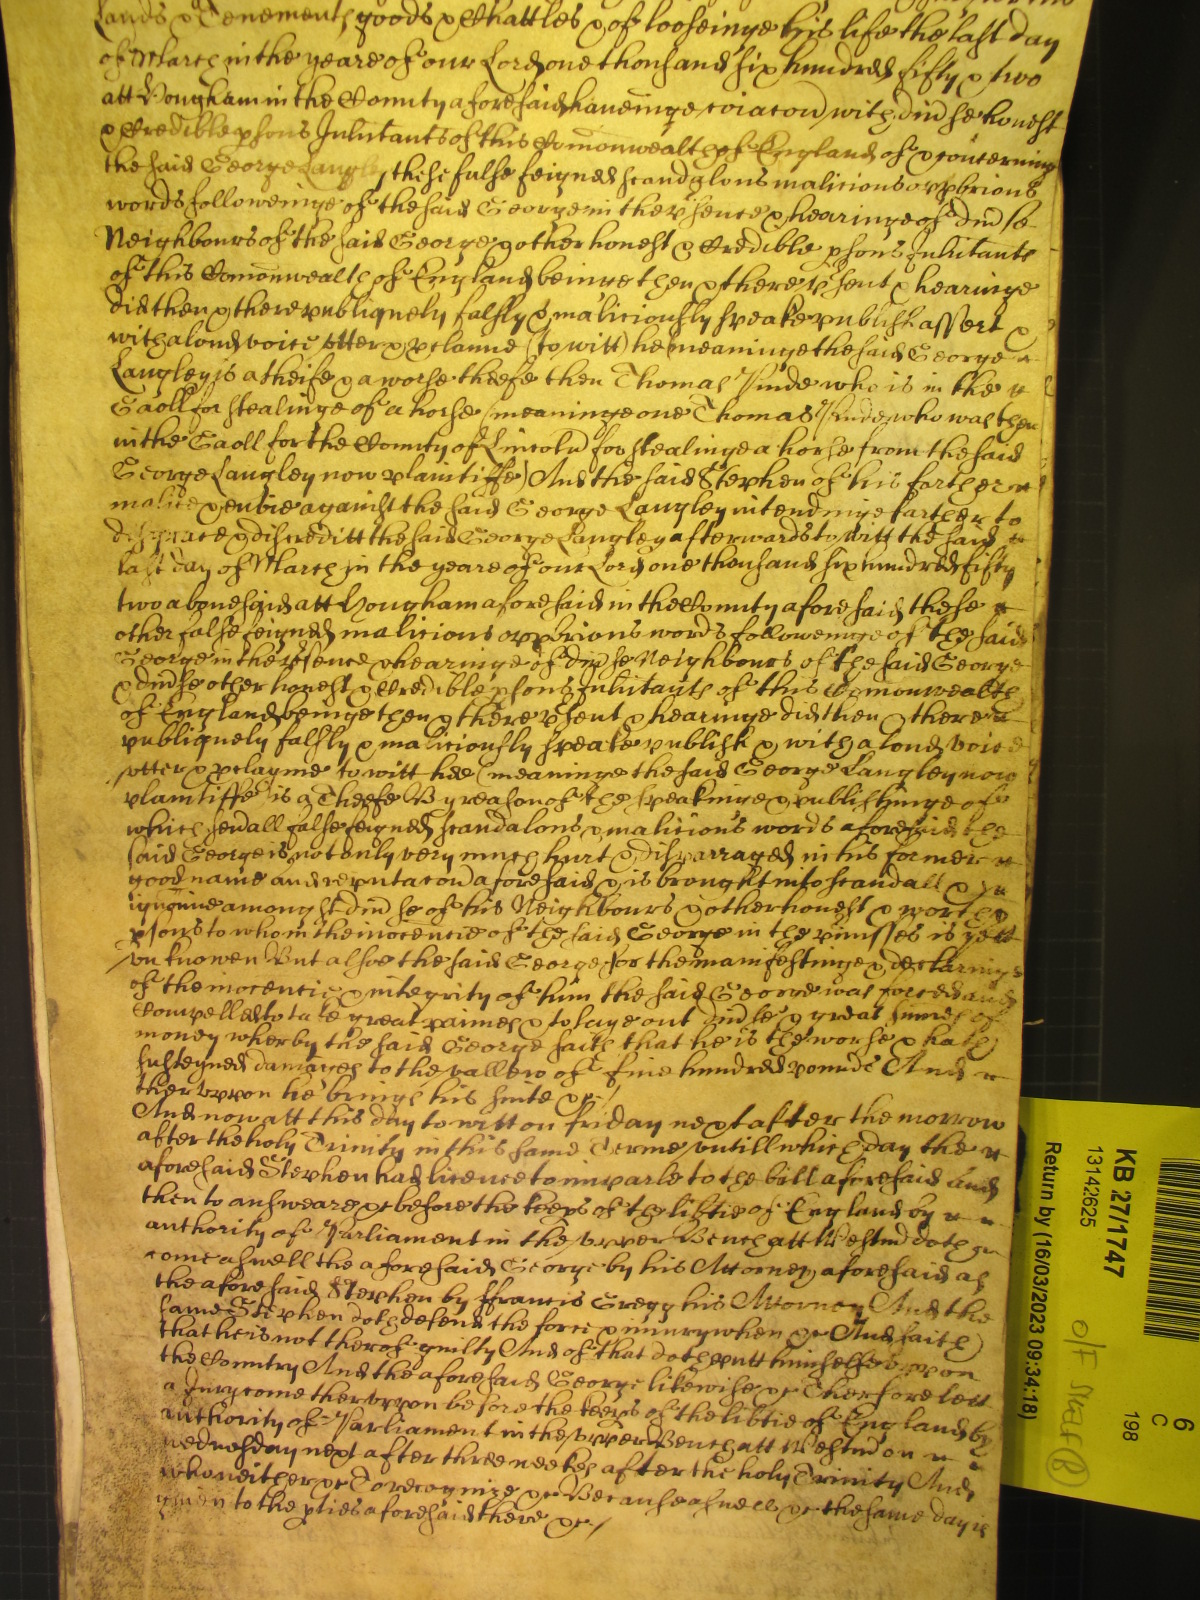 Lands & Tenements goods & Chattles & of looseinge his life the last day
of March in the yeare of our Lord one thousand six hundred fifty & two
att Hougham in the County aforesaid haveinge coĩacon with divse honest
& Credible psons Inhitants of this Comonwealth of England of & concerning
the said George Langley these false feigned scandalous malicious opprobrious
words followeinge of the said George in the psence & hearinge of divse
Neighbours of the said George & other honest & Credible psons Inhitants
of this Comonwealth of England beinge then & there psent & hearinge
did then & there publiquely falsly & maliciously speake publish assert &
with a loud voice utter & pclaime (to witt) he (meaninge the said George
Langley) is a theife & a worse theefe then Thomas Pinder who is in the
Gaoll for stealinge of a horse (meaninge one Thomas Pinder who was then
in the Gaoll for the County of Lincoln for stealinge a horse from the said
George Langley now plaintiffe) And the said Stephen of his farther
malice & envie against the said George Langley intendinge farther to
disgrace & discreditt the said George Langley afterwards to witt the said
last day of March in the yeare of our Lord one thousand six hundred fifty
two abovesaid att Hougham aforesaid in the County aforesaid these
other false feigned malicious opprobrious words followeinge of the said
George in the psence & hearinge of divse Neighbours of the said George
& divse other honest & Credible psons Inhitants of this Comonwealth
of England beinge then & there psent & hearinge did then & there
publiquely falsly & maliciously speake publish & with a loud voice
utter & pclayme to witt hee (meaninge the said George Langley now
plaintiffe) is a Theefe By reason of the speakinge & publishinge of
which sevall false feigned scandalous & malicious words aforesaid the
said George is not only very much hurt & disparraged in his former
good name and reputacon aforesaid & is brought into scandall &
amongst divse of his Neighbours & other honest & worthy
psons to whom the inocencie of the said George in the pmisses is yett
unknowen But alsoe the said George for the manifestinge & declaringe
of the inocencie & integrity of him the said George was forced and
Compelled to take great paines & to laye out divse & great summes of
money wherby the said George saith that he is the worse & hath
susteyned damages to the vallew of five hundred pounds And
therupon he brings his suite &c /
And now att this day to witt on friday next after the morrow
after the holy Trinity in this same Terme untill which day the
aforesaid Stephen had licence to imparle to the bill aforesaid and
then to answeare &c before the keeps of the libtie of England by
authority of Parliament in the upper Bench att Westmr doth
come aswell the aforesaid George by his Attorney aforesaid as
the aforesaid Stephen by ffrancis Gregg his Attorney And the
same Stephen doth defend the force & iniury when &c And saith
that he is not therof guilty And of that doth putt himselfe upon
the Country And the aforesaid George likewise &c Therfore lett
a Jury come therupon before the keeps of the libtie of England by
authority of Parliament in the upper Bench att Westmr on
wednesday next after three weekes after the holy Trinity And
who neither &c To recognize &c Because aswell &c the same day is
given to the pties aforesaid there &c /
KB 27/1747
13142625
Return by (16/03/2023 09:34:18)
6
C
198